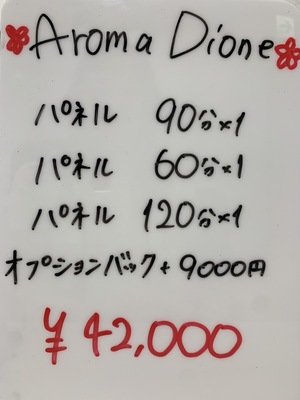 Aroma Dione
パネル 90分×1
パネル 60分×1
パネル 120分×1
オプションバック+9000円
¥42,000